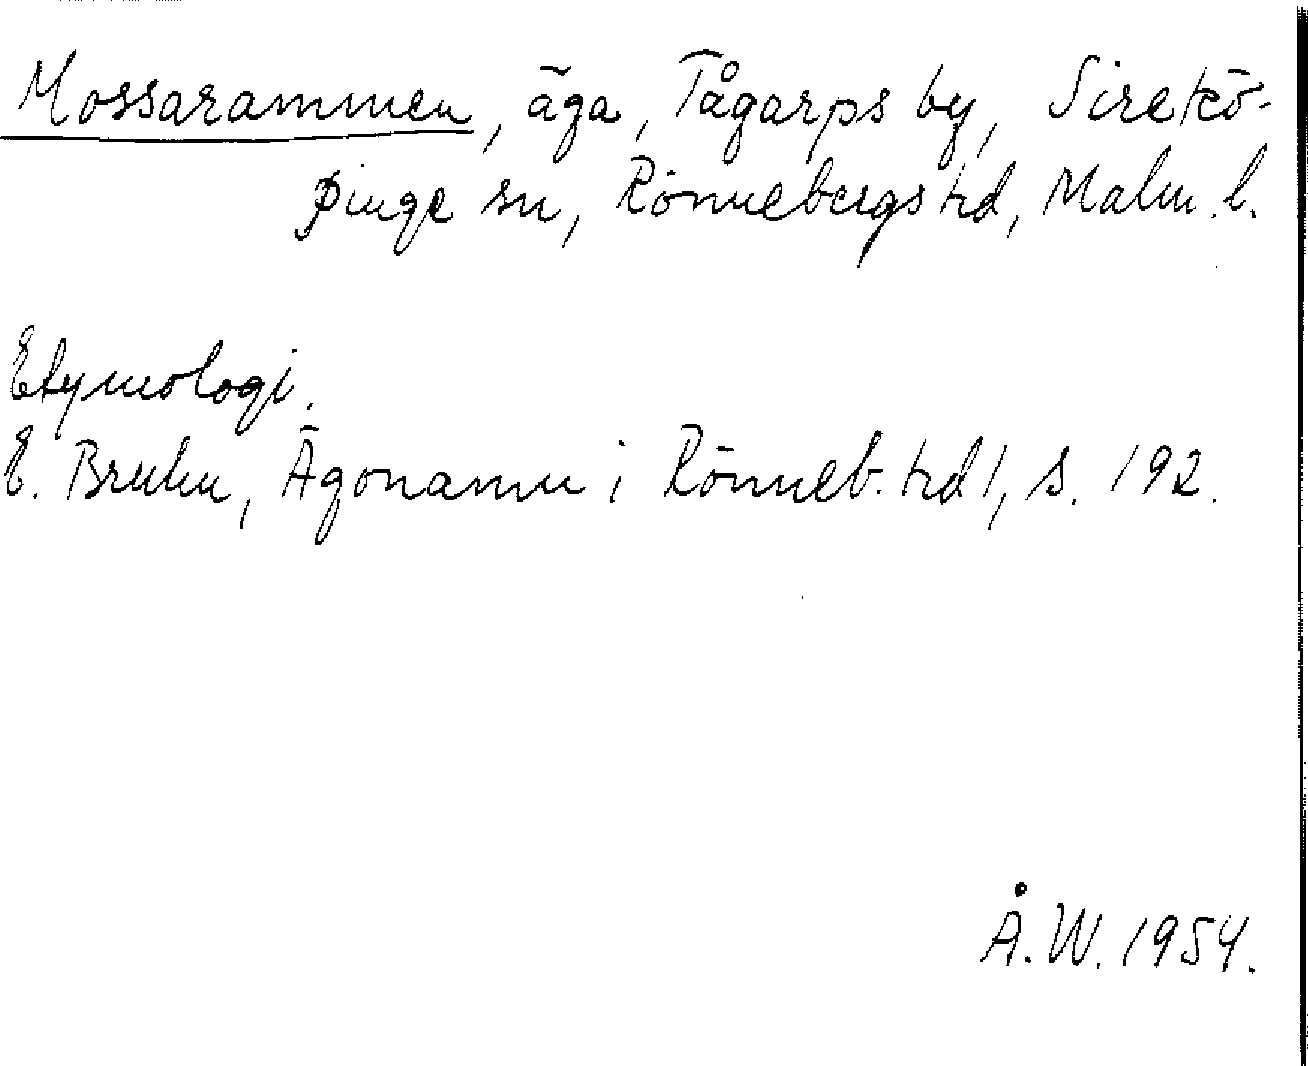 Mossarammen, äga, Tågarps by, Sirekö-
pinge sn, Rönnebergs hd, Malm. l.
Etymologi.
E. Bruhn, Ägonamn i Rönneb. hd 1, s. 192.
Å. W. 1954.